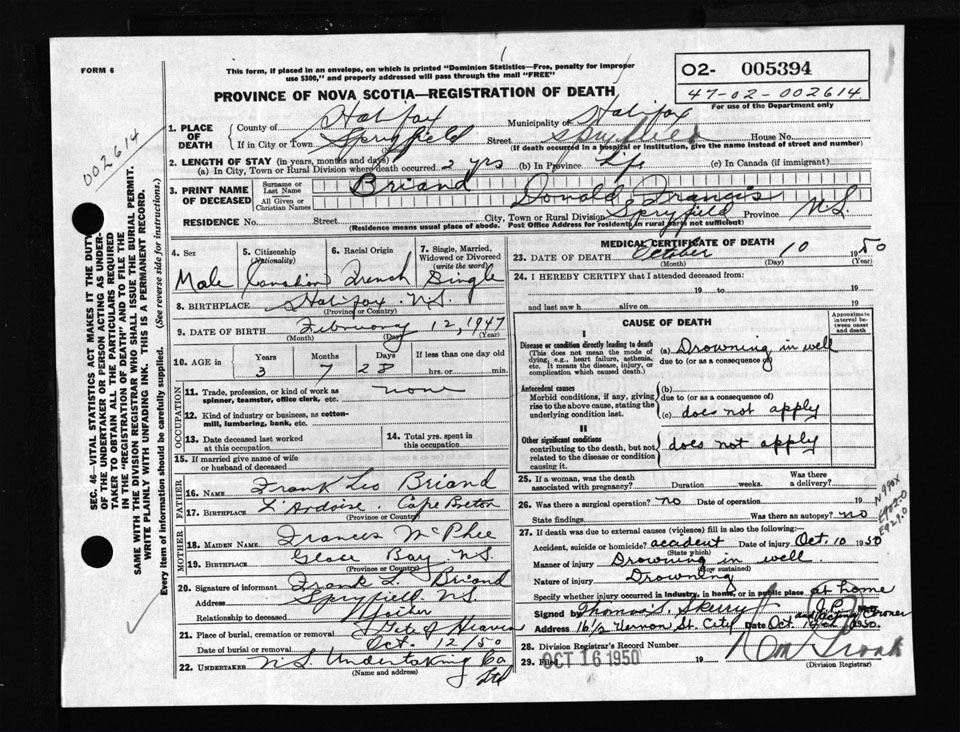 FORM 6
This form, if placed in an envelope, on which is printed "Dominion Statistics—Free, penalty for improper
use $300," and properly addressed will pass through the mail "FREE"
PROVINCE OF NOVA SCOTIA—REGISTRATION OF DEATH
02- 005394
47-02-002614
For use of the Department only
002614
SEC. 46—VITAL STATISTICS ACT MAKES IT THE DUTY
OF THE UNDERTAKER OR PERSON ACTING AS UNDER-
TAKER TO OBTAIN ALL THE PARTICULARS REQUIRED
IN THE "REGISTRATION OF DEATH" AND TO FILE THE
SAME WITH THE DIVISION REGISTRAR WHO SHALL ISSUE THE BURIAL PERMIT.
WRITE PLAINLY WITH UNFADING INK. THIS IS A PERMANENT RECORD.
Every item of information should be carefully supplied. (See reverse side for instructions.)
1. PLACE OF DEATH County of Halifax Municipality of Halifax
If in City or Town Spryfield Street Spryfield House No.
(If death occurred in a hospital or institution, give the name instead of street and number)
2. LENGTH OF STAY (in years, months and days)
(a) In City, Town or Rural Division where death occurred 2 yrs (b) In Province Life (c) In Canada (if immigrant)
3. PRINT NAME OF DECEASED Surname or Last Name Briand
All Given or Christian Names Donald Francis
RESIDENCE No. Street City, Town or Rural Division Spryfield Province N.S.
(Residence means usual place of abode. Post Office Address for residents in rural parts not sufficient)
4. Sex Male
5. Citizenship (Nationality) Canadian
6. Racial Origin French
7. Single, Married, Widowed or Divorced (write the word) Single
8. BIRTHPLACE Halifax N.S.
(Province or Country)
9. DATE OF BIRTH February 12, 1947
(Month) (Day) (Year)
10. AGE in Years 3 Months 7 Days 28 If less than one day old hrs. or min.
OCCUPATION
11. Trade, profession, or kind of work as spinner, teamster, office clerk, etc. none
12. Kind of industry or business, as cotton-mill, lumbering, bank, etc.
13. Date deceased last worked at this occupation
14. Total yrs. spent in this occupation
15. If married give name of wife or husband of deceased
FATHER
16. NAME Frank Leo Briand
17. BIRTHPLACE L'Ardoise Cape Breton
(Province or Country)
MOTHER
18. MAIDEN NAME Frances McPhee
19. BIRTHPLACE Glace Bay N.S.
(Province or Country)
20. Signature of informant Frank L. Briand
Address Spryfield N.S.
Relationship to deceased Father
21. Place of burial, cremation or removal Gate of Heaven
Date of burial or removal Oct. 12/50
22. UNDERTAKER N.S. Undertaking Co Ltd
(Name and address)
MEDICAL CERTIFICATE OF DEATH
23. DATE OF DEATH October 10 1950
(Month) (Day) (Year)
24. I HEREBY CERTIFY that I attended deceased from:
19 to 19
and last saw h alive on 19
CAUSE OF DEATH
Approximate interval between onset and death
I
Disease or condition directly leading to death
(This does not mean the mode of dying, e.g., heart failure, asthenia, etc. It means the disease, injury, or complication which caused death.)
(a) Drowning in well
due to (or as a consequence of)
Antecedent causes
Morbid conditions, if any, giving rise to the above cause, stating the underlying condition last.
(b)
due to (or as a consequence of)
(c) does not apply
II
Other significant conditions
contributing to the death, but not related to the disease or condition causing it.
does not apply
25. If a woman, was the death associated with pregnancy? Duration weeks. Was there a delivery?
26. Was there a surgical operation? no Date of operation 19
State findings Was there an autopsy? no
N990X
E902.0
E929.0
27. If death was due to external causes (violence) fill in also the following:—
Accident, suicide or homicide? accident Date of injury Oct. 10 1950
(State which)
Manner of injury Drowning in well
(How sustained)
Nature of injury Drowning
Specify whether injury occurred in industry, in home, or in public place at home
Signed by Thomas J. Skerry J.P. and Acting Coroner
Address 16½ Vernon St. City Date Oct. 1950.
28. Division Registrar's Record Number
29. Filed OCT 16 1950 19
(Division Registrar)